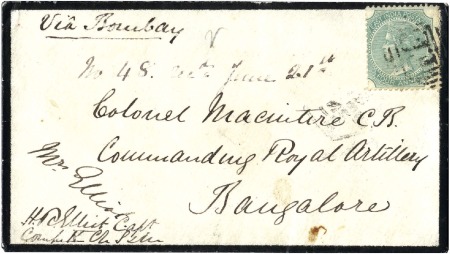 Via Bombay
No 48. June 21st
Colonel Macintire C.B.
Commanding Royal Artillery
Bangalore
Mrs Elliot
H. Elliot Capt